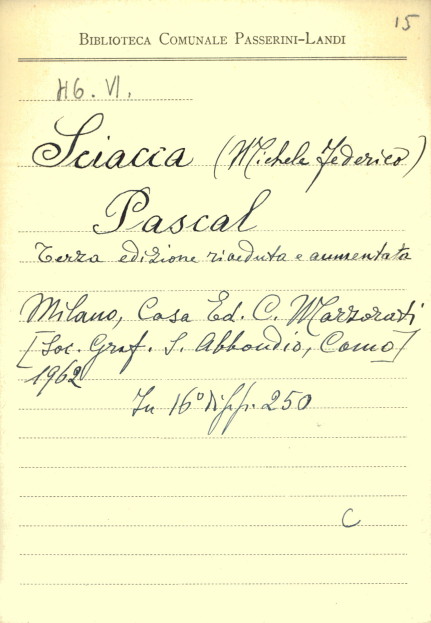 15
BIBLIOTECA COMUNALE PASSERINI-LANDI
H6. VI.
Sciacca (Michele Federico)
Pascal
Terza edizione riveduta e aumentata
Milano, Casa Ed. C. Marzorati
[Soc. Graf. S. Abbondio, Como]
1962
In 16° di pp. 250
C